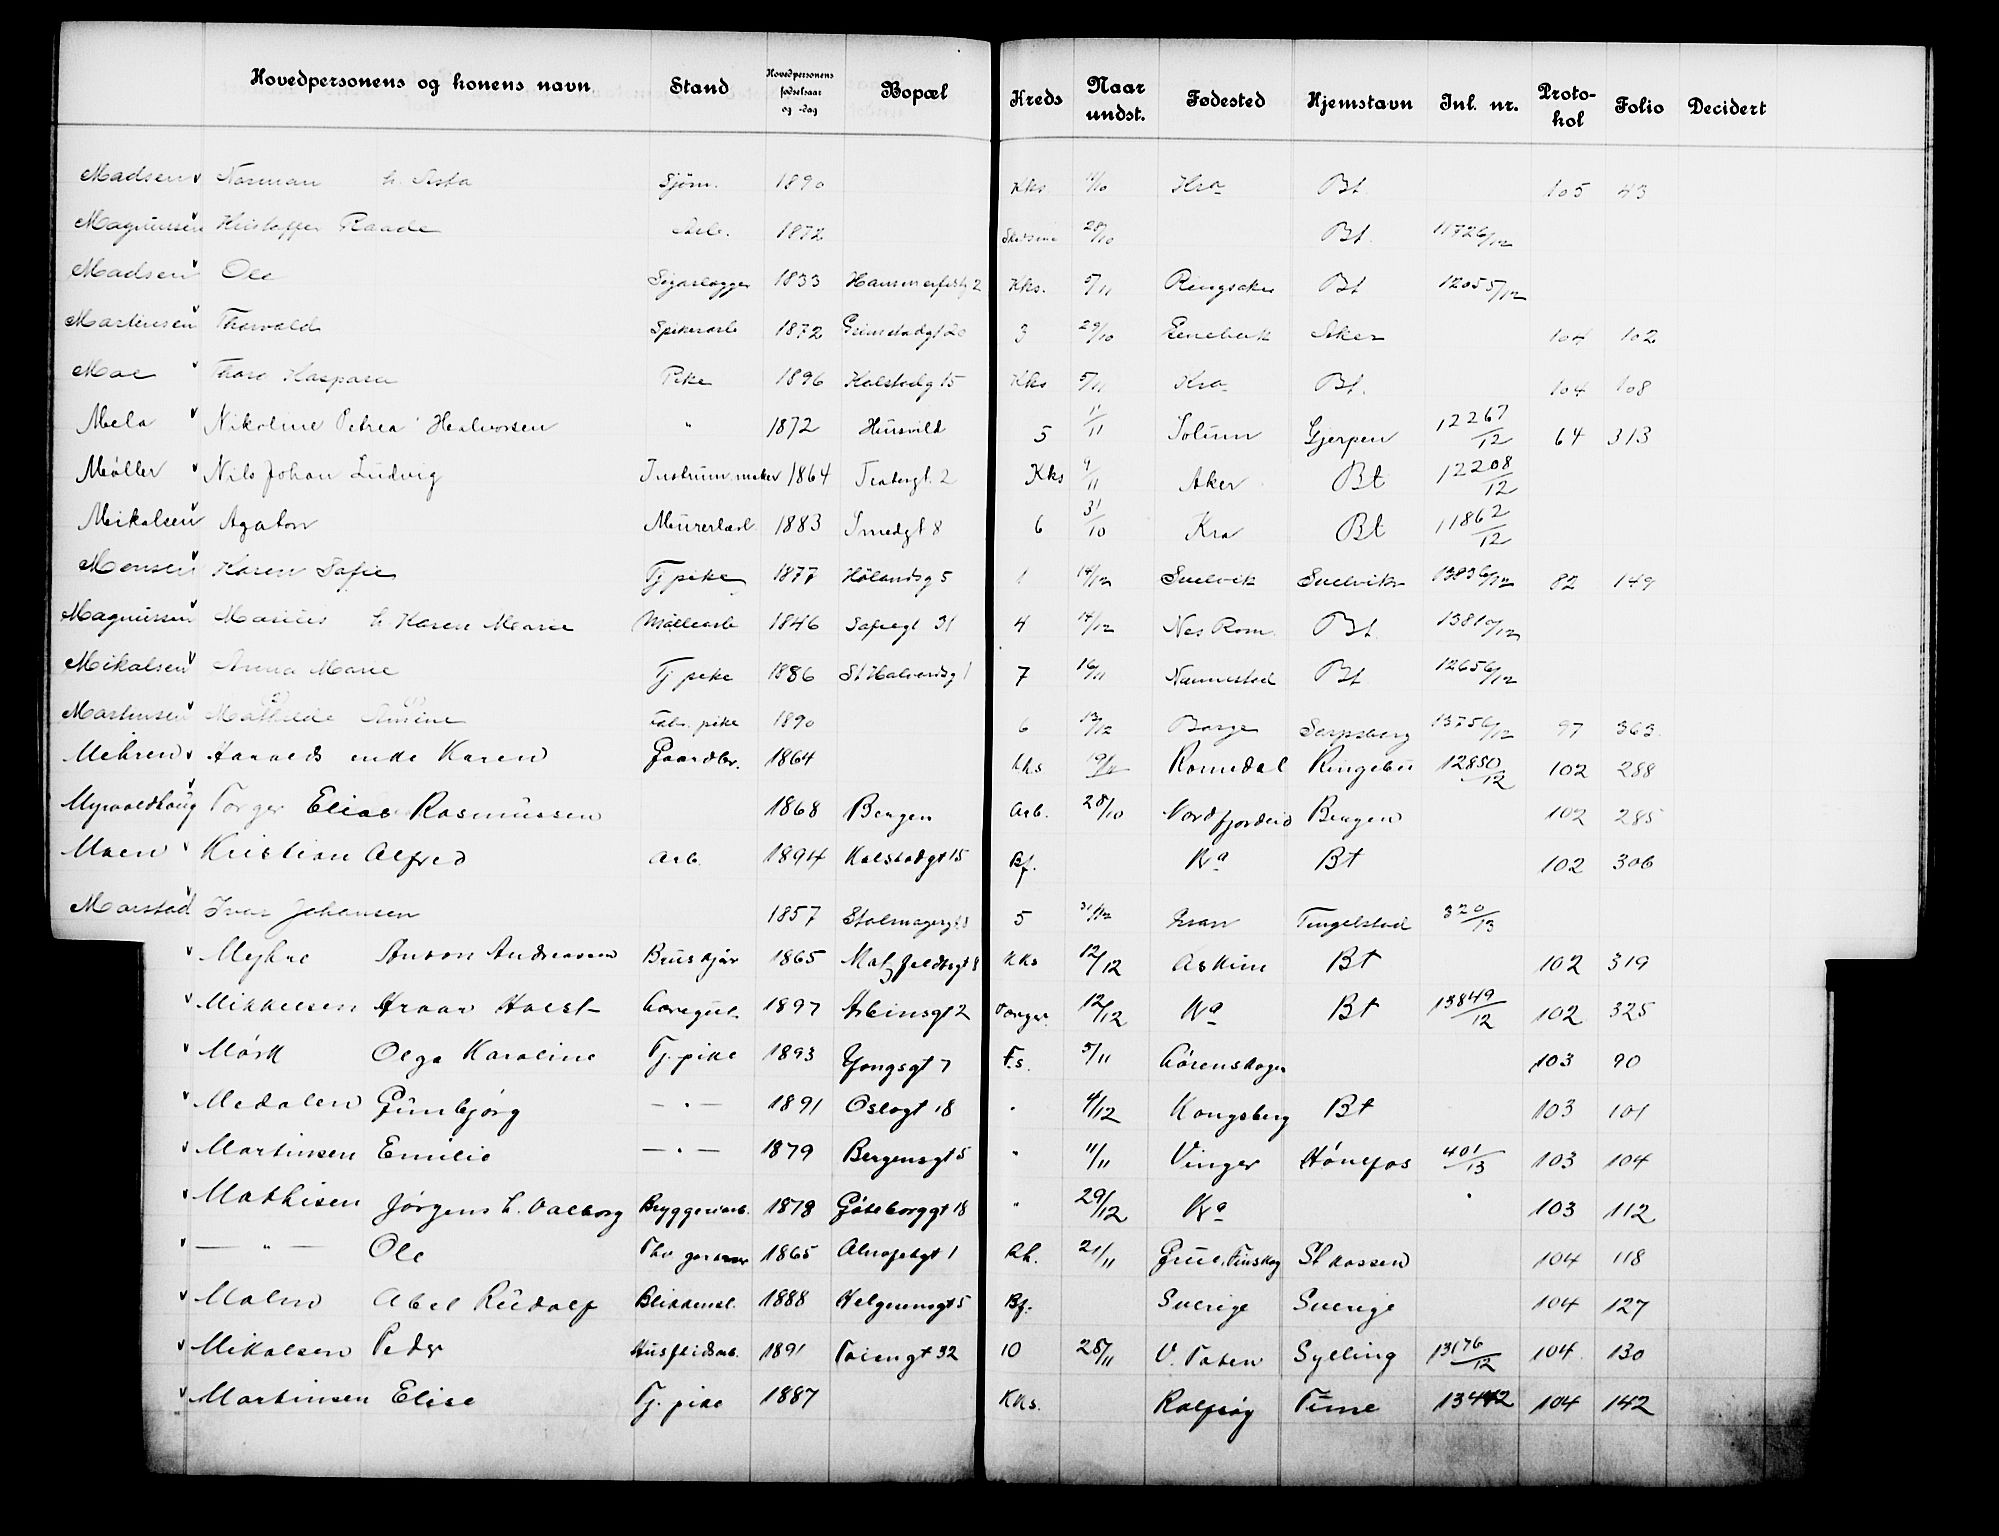 Hovedpersonens og konens navn Stand Hovedpersonens fødselsaar og -dag Bopæl Kreds Naar undst. Fødested Hjemstavn Inl. nr. Proto-kol Folio Decidert
Madsen Norman h. Asta Sjöm. 1890 Kks 11/10 Kra Bt 105 43
Magnussen Kristoffer Raade Arb. 1872 28/10 Bt. 11726/12
Madsen Ole Sigarlegger 1833 Hammerfestg 2 Kks. 5/11 Ringsaker Bt 12055/12
Martinsen Thorvald Spikerarb 1872 Grimstadgt 20 3 29/10 Enebak Aker 104 102
Moe Thora Kaspara Pike 1896 Kalstadgt 15 Kks 5/11 Kra Bt. 104 108
Mela Nikoline Petrea Halvorsen " 1872 Husvild 5 11/11 Solum Gjerpen 12267/12 64 313
Møller Nils Johan Ludvig Instrum.maker 1864 Teatergt. 2 Kks 9/11 Aker Bt 12208/12
Mikalsen Agaton Murerarb 1883 Smedgt 8 6 31/10 Kra Bt 11862/12
Monsen Karen Sofie Tj pike 1877 Hølandsg 5 1 14/12 Svelvik Svelvik 13836/12 82 149
Magnussen Marius h Karen Marie Møllearb 1846 Sofiegt 31 4 14/12 Nes Rom. Bt. 13810/12
Mikalsen Anna Marie Tj pike 1886 St Halvardsg 1 7 16/11 Nannestad Bt 12656/12
Martinsen Mathilde Amine Fabr. pike 1890 6 13/12 Borge Sarpsberg 13756/12 97 363
Mehren Haralds enke Karen Gaardbr. 1864 Kks 19/11 Romedal Ringebu 12850/12 102 288
Myrvoldhaug Torger Elias Rasmussen 1868 Bergen Arb. 28/10 Nordfjordeid Bergen 102 285
Moen Kristian Alfred Arb. 1894 Kalstadgt 15 Bf. Kra Bt 102 306
Morstad Ivar Johansen 1857 Stolmagergt 8 5 31/12 Gran Tingelstad 320/13
Myhre Anton Andreassen Bruskjør 1865 Motzfeldtsgt 8 Kks 12/12 Askim Bt 102 319
Mikkelsen Hroar Holst 1897 Arbinsgt 2 12/12 Kra Bt 13849/12 102 325
Mørk Olga Karoline Tj. pike 1893 Yongsgt 7 F.s. 5/11 Lørenskogen 103 90
Medalen Gunbjørg — " — 1891 Oslogt 18 " 4/12 Kongsberg Bt 103 101
Martinsen Emilie — " — 1879 Bergensgt 5 " 11/11 Vinger Hønefos 401/13 103 104
Mathisen Jørgens h. Valborg Bryggeriarb. 1878 Gøteborggt 18 " 29/12 Kra 103 112
— " — Ole 1865 Alnafetgt 1 Rh. 21/11 Grue Finskog St kassen 104 118
Malm Abel Rudolf Blikkensl. 1888 Helgesensgt 5 Bf. Sverige Sverige 104 127
Mikalsen Peder Husflidsarb. 1891 Tøiengt 32 10 28/11 V. Toten Sylling 13176/12 104 130
Martinsen Elise Tj. pike 1887 Kks. Rolfsøy Tune 13442 104 142